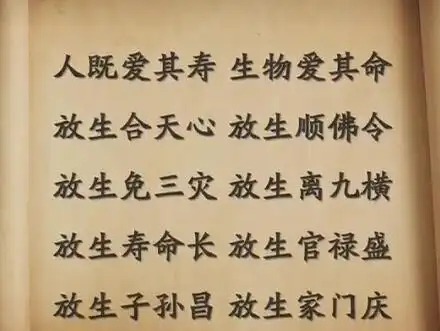 人既爱其寿 生物爱其命
放生合天心 放生顺佛令
放生免三灾 放生离九横
放生寿命长 放生官禄盛
放生子孙昌 放生家门庆